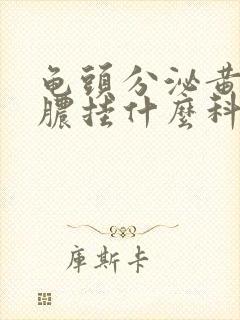 龟頭分泌黄
膿挂什麼科
庫斯卡